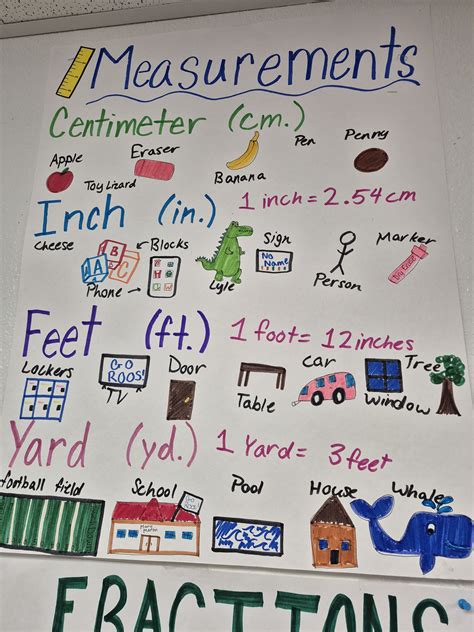 Measurements
Centimeter (cm.)
Apple
Eraser
Pen
Penny
Toy Lizard
Banana
Inch (in.) 1 inch = 2.54 cm
cheese
Blocks
Sign
Marker
A B C
No Name
Phone
Lyle
Person
Feet (ft.) 1 foot = 12 inches
Lockers
GO ROOS!
Door
Car
Tree
TV
Table
Window
Yard (yd.) 1 Yard = 3 feet
football field
School
Pool
House
Whale
FRACTIONS